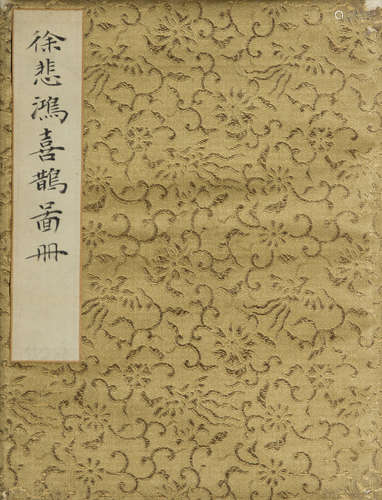 徐悲鴻喜鵲啚冊